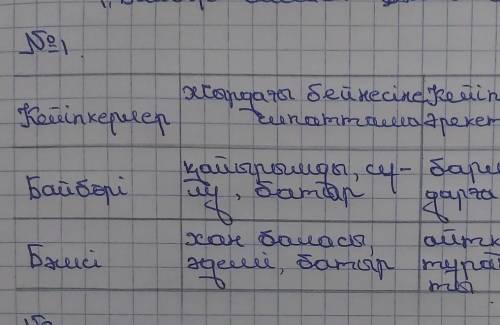 №1.
Кейіпкерлер
жырдағы бейнесіне
сипаттама
Кейіп
әрекет
Байбөрі
қайырымды, су-
лу, батыр
барл
дарға
Бәмсі
хан баласы,
әдемі, батыр
айтқ
тұрай
ты
№